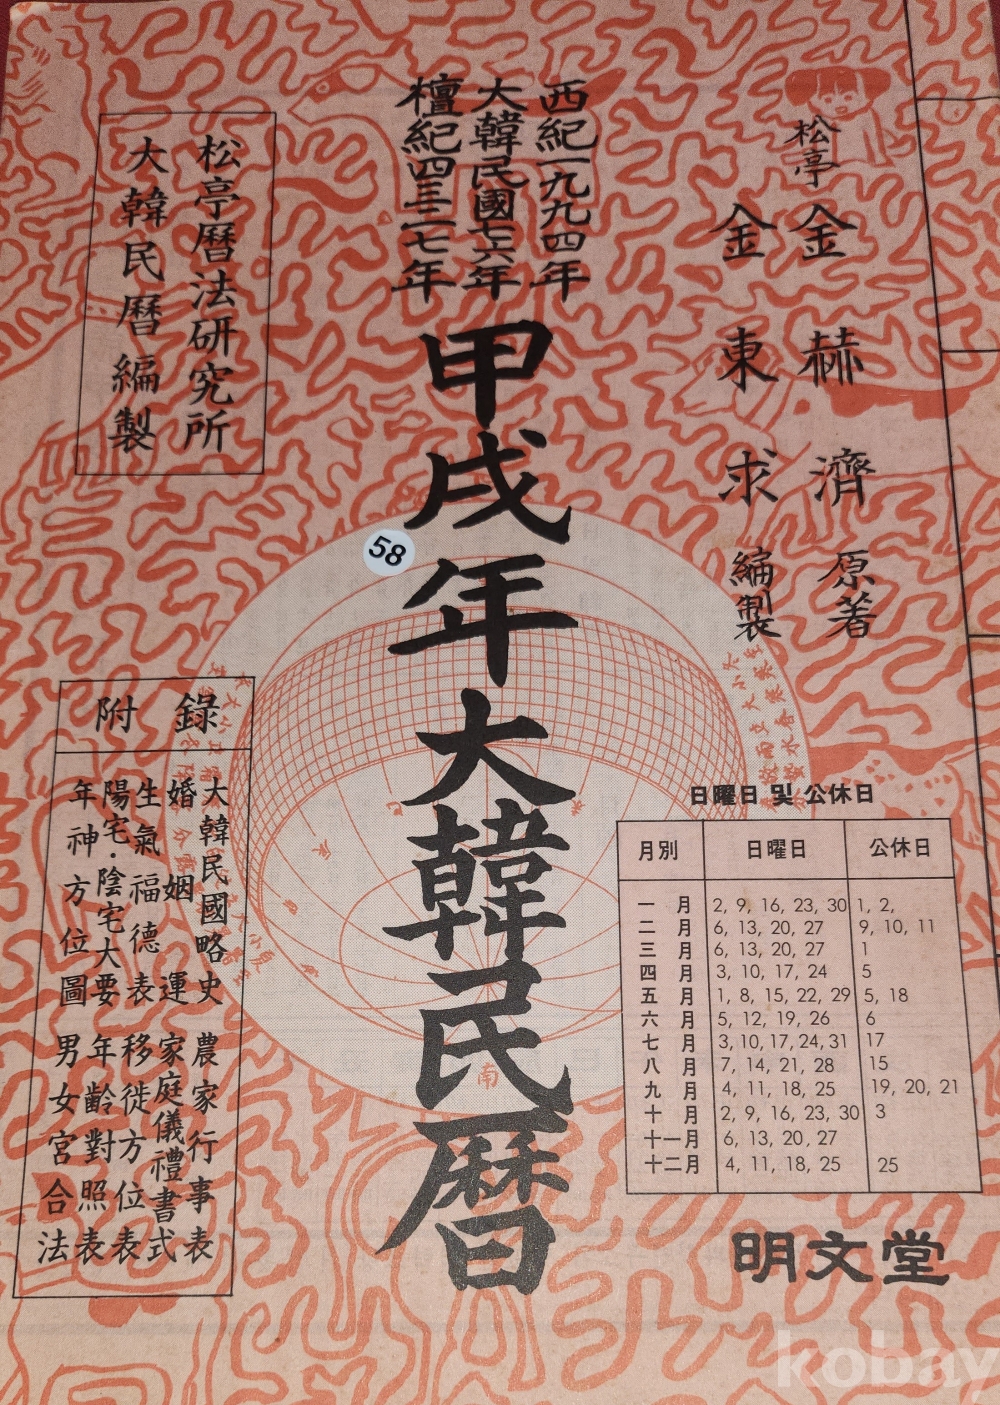 松亭
金赫濟 原著
金東求 編製
西紀一九九四年
大韓民國七六年
檀紀四三二七年
甲戌年大韓民曆
松亭曆法研究所
大韓民曆編製
58
附錄
大韓民國略史 農家行事表
婚姻運 家庭儀禮書式
生氣福德表 移徙方位表
陽宅·陰宅大要 年齡對照表
年神方位圖 男女宮合法
日曜日 및 公休日
月別 日曜日 公休日
一月 2, 9, 16, 23, 30 1, 2,
二月 6, 13, 20, 27 9, 10, 11
三月 6, 13, 20, 27 1
四月 3, 10, 17, 24 5
五月 1, 8, 15, 22, 29 5, 18
六月 5, 12, 19, 26 6
七月 3, 10, 17, 24, 31 17
八月 7, 14, 21, 28 15
九月 4, 11, 18, 25 19, 20, 21
十月 2, 9, 16, 23, 30 3
十一月 6, 13, 20, 27
十二月 4, 11, 18, 25 25
南
明文堂
kobay